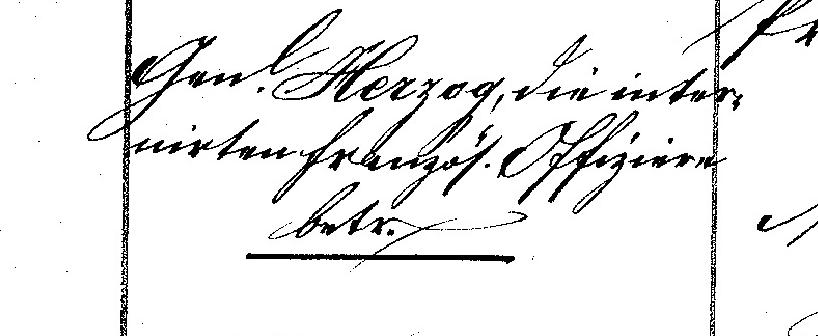 Genl. Herzog, die inter-
nirten französ. Offiziere
betr.